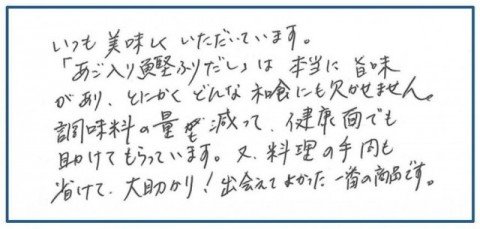 いつも美味しくいただいています。
「あご入り鰹ふりだし」は本当に旨味
があり、とにかくどんな和食にも欠かせません。
調味料の量も減って、健康面でも
助けてもらっています。又、料理の手間も
省けて、大助かり!出会えてよかった一番の商品です。